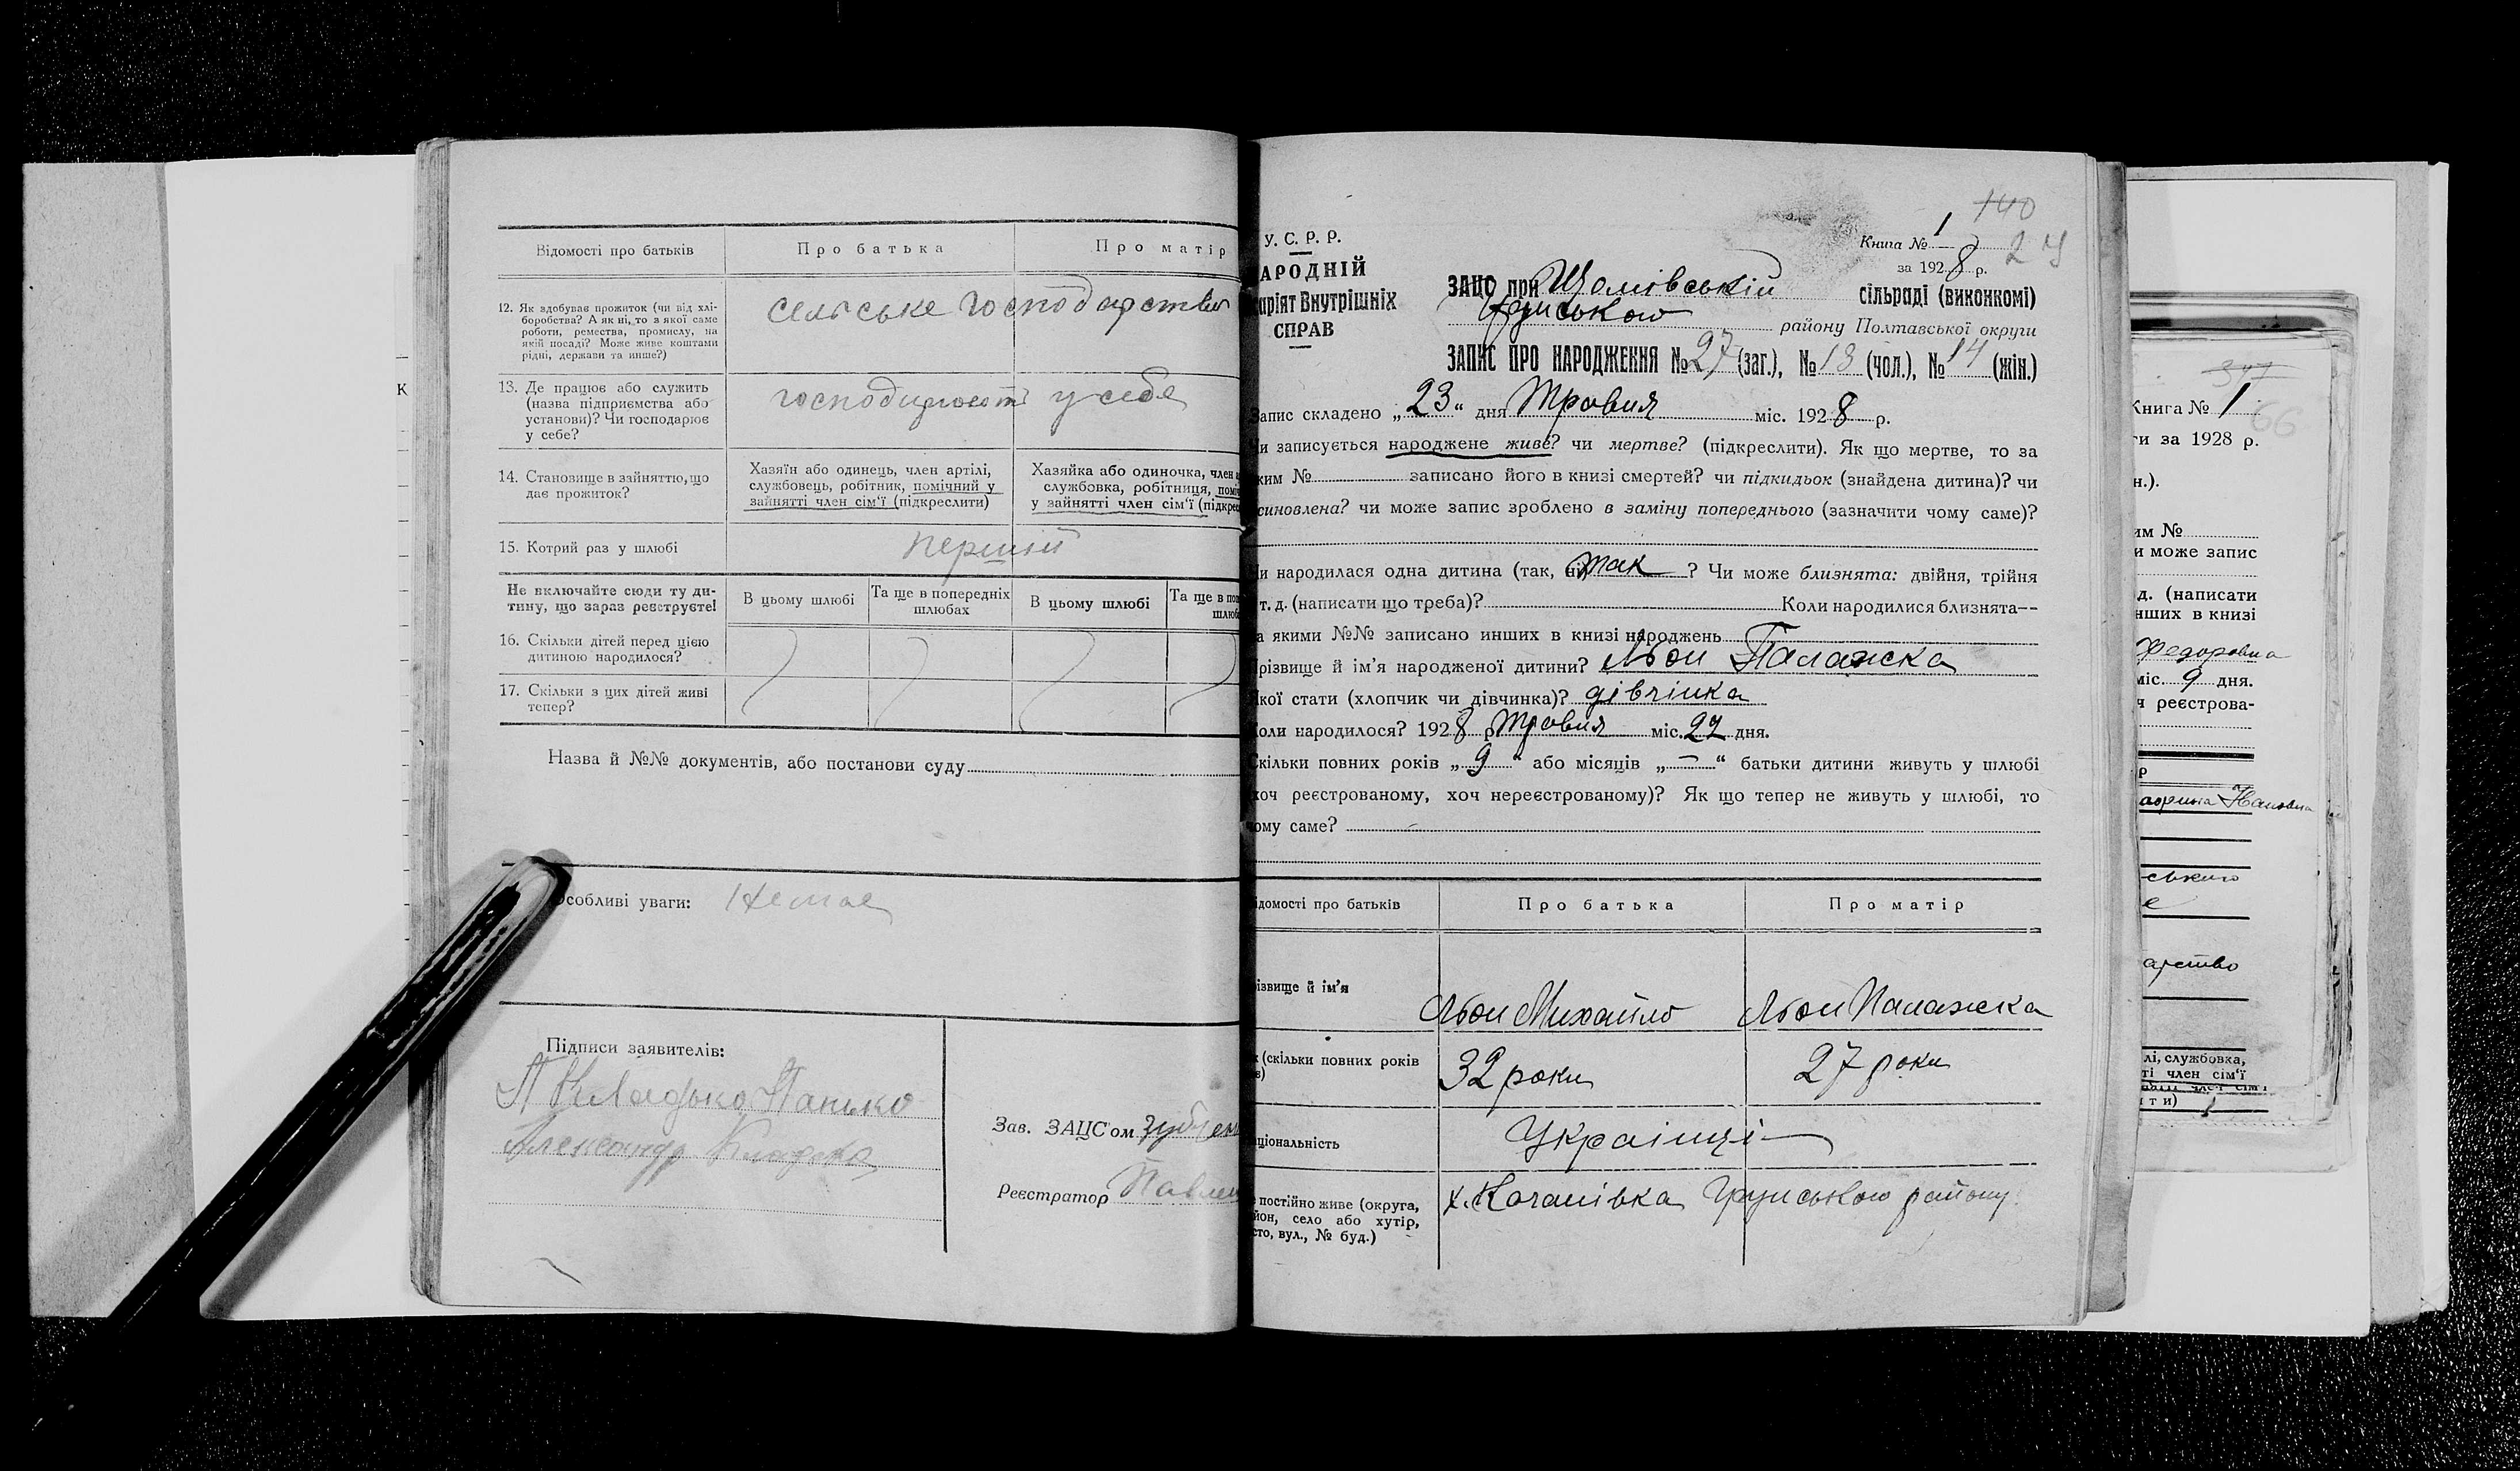 Відомості про батьків
Про батька
Про матір
12. Як здобуває прожиток (чи від хлі-
боробства? А як ні, то з якої саме
роботи, ремества, промислу, на
якій посаді? Може живе коштами
рідні, держави та инше?)
сельське господарство
13. Де працює або служить
(назва підприємства або
установи)? Чи господарює
у себе?
у себе
14. Становище в зайняттю, що
дає прожиток?
Хазяїн або одинець, член артілі,
службовець, робітник, помічний у
зайнятті член сім'ї (підкреслити)
Хазяйка або одиночка, член
службовка, робітниця,
у зайнятті член сім'ї
15. Котрий раз у шлюбі
перший
Не включайте сюди ту ди-
тину, що зараз реєструєте!
В цьому шлюбі
Та ще в попередніх
шлюбах
В цьому шлюбі
Та ще в
16. Скільки дітей перед цією
дитиною народилося?
17. Скільки з цих дітей живі
тепер?
Назва й №№ документів, або постанови суду
Особливі уваги: Немає
Підписи заявителів:
Панько
Зав. ЗАЦС'ом
Реєстратор
140
У. С. Р. Р.
АРОДНІЙ
аріят Внутрішніх
СПРАВ
Книга № 1
за 1928 р.
ЗАЦС при сільраді (виконкомі)
району Полтавської округи
ЗАПИС ПРО НАРОДЖЕННЯ № 27 (заг.), № 13 (чол.), № 14 (жін.)
Запис складено „23“ дня Травня міс. 1928 р.
и записується народжене живе? чи мертве? (підкреслити). Як що мертве, то за
ким № записано його в книзі смертей? чи підкидьок (знайдена дитина)? чи
синовлена? чи може запис зроблено в заміну попереднього (зазначити чому саме)?
и народилася одна дитина (так, ні) так ? Чи може близнята: двійня, трійня
т. д. (написати що треба)? Коли народилися близнята—
а якими №№ записано инших в книзі народжень
різвище й ім'я народженої дитини? Палажка
кої стати (хлопчик чи дівчинка)? дівчінка
оли народилося? 1928 р. Травня міс. дня.
кільки повних років „9“ або місяців „—“ батьки дитини живуть у шлюбі
хоч реєстрованому, хоч нереєстрованому)? Як що тепер не живуть у шлюбі, то
ому саме?
ідомості про батьків
Про батька
Про матір
ізвище й ім'я
Михайло
Палажка
(скільки повних років
32 роки
27 роки
ціональність
Українці
постійно живе (округа,
йон, село або хутір,
сто, вул., № буд.)
х. Качанівка Грунського району
347
Книга № 1
66
ти за 1928 р.
н.).
им №
и може запис
д. (написати
нших в книзі
Федоровна
міс. 9 дня.
реєстрова-
р
ського
арство
лі, службовка,
ті член сім'ї